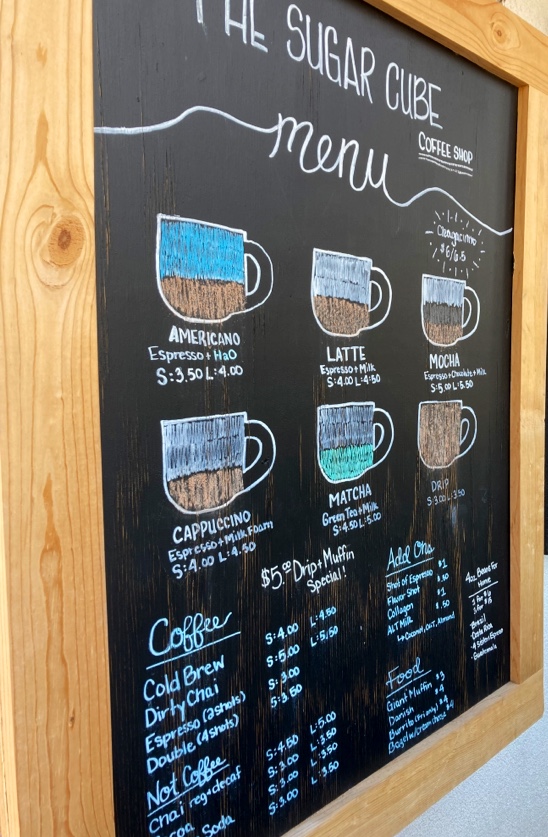 THE SUGAR CUBE
COFFEE SHOP
menu
$6/6.5
AMERICANO
Espresso + H2O
S:3.50 L:4.00
LATTE
Espresso + Milk
S:4.00 L:4.50
MOCHA
Espresso + Chocolate + Milk
S:5.00 L:5.50
CAPPUCCINO
Espresso + Milk Foam
S:4.00 L:4.50
MATCHA
Green Tea + Milk
S:4.50 L:5.00
DRIP
S:3.00 L:3.50
$5.00 Drip + Muffin
Special!
Coffee
Cold Brew S:4.00 L:4.50
Dirty Chai S:5.00 L:5.50
Espresso (2 shots) S:3.00
Double (4 shots) S:3.50
Not Coffee
Chai reg + decaf S:4.50 L:5.00
S:3.00 L:3.50
Soda S:3.00 L:3.50
S:3.00 L:3.50
Add Ons
Shot of Espresso $1
Flavor Shot
Collagen $1
ALT Milk .50
Coconut, OAT, Almond
4oz. Beans For
Home
Brazil
Costa Rica
Guatemala
Food
Giant Muffin $3
Danish $4
Burrito (Fri only)
Bagel w/cream cheese $4